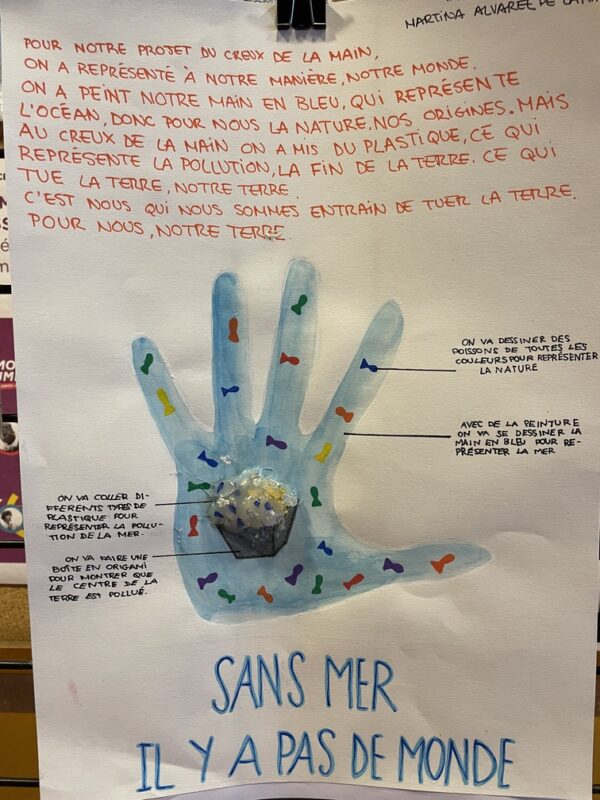 MARTINA ALVAREZ DE LA
POUR NOTRE PROJET DU CREUX DE LA MAIN,
ON A REPRÉSENTÉ À NOTRE MANIÈRE, NOTRE MONDE.
ON A PEINT NOTRE MAIN EN BLEU, QUI REPRÉSENTE
L'OCÉAN, DONC POUR NOUS LA NATURE, NOS ORIGINES. MAIS
AU CREUX DE LA MAIN ON A MIS DU PLASTIQUE, CE QUI
REPRÉSENTE LA POLLUTION, LA FIN DE LA TERRE. CE QUI
TUE LA TERRE, NOTRE TERRE.
C'EST NOUS QUI NOUS SOMMES ENTRAIN DE TUER LA TERRE.
POUR NOUS, NOTRE TERRE.
ON VA DESSINER DES
POISSONS DE TOUTES LES
COULEURS POUR REPRÉSENTER
LA NATURE
AVEC DE LA PEINTURE
ON VA SE DESSINER LA
MAIN EN BLEU POUR RE-
PRÉSENTER LA MER
ON VA COLLER DI-
FFERENTS TYPES DE
PLASTIQUE POUR
REPRÉSENTER LA POLLU-
TION DE LA MER.
ON VA FAIRE UNE
BOÎTE EN ORIGAMI
POUR MONTRER QUE
LE CENTRE DE LA
TERRE EST POLLUÉ.
SANS MER
IL Y A PAS DE MONDE